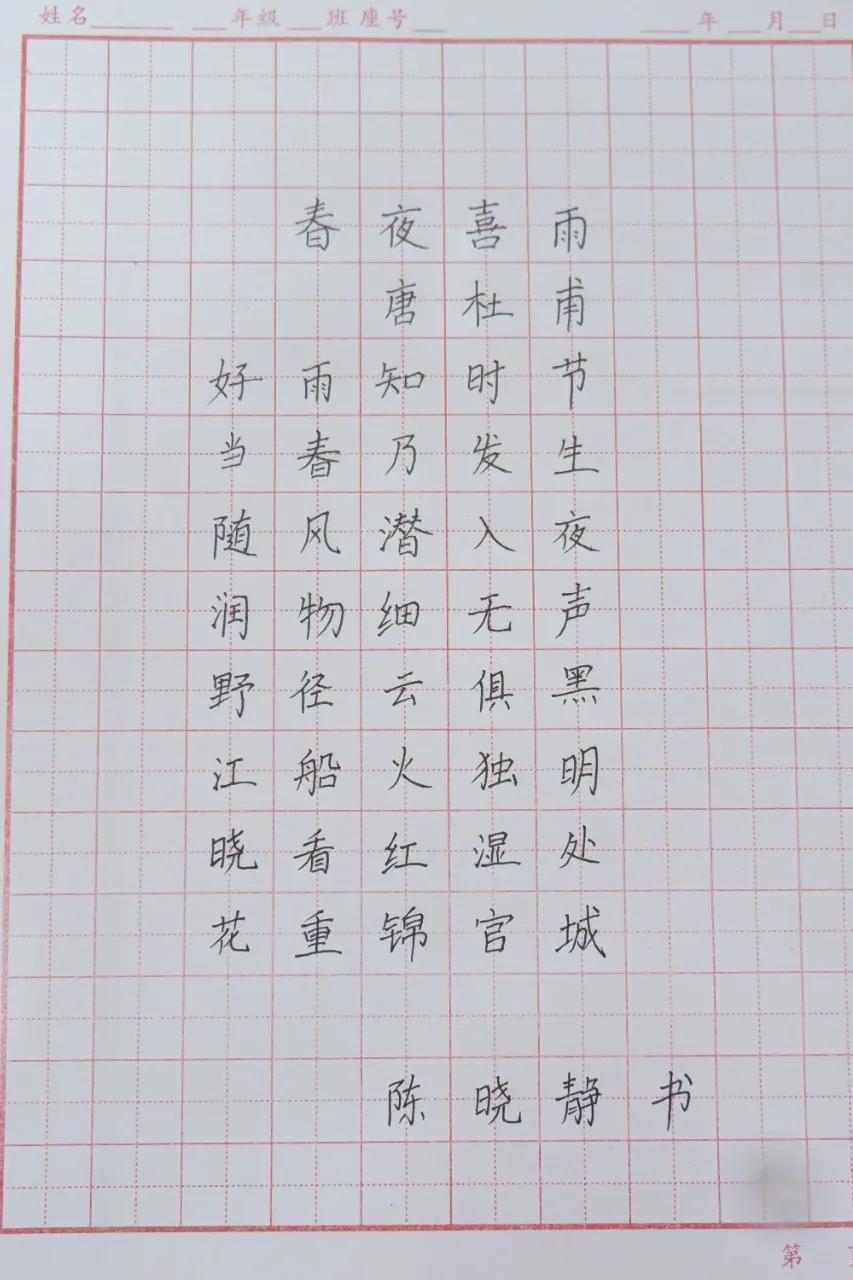 姓名______ ___年级___班 座号___ ____年___月___日
春夜喜雨
唐杜甫
好雨知时节
当春乃发生
随风潜入夜
润物细无声
野径云俱黑
江船火独明
晓看红湿处
花重锦官城
陈晓静书
第